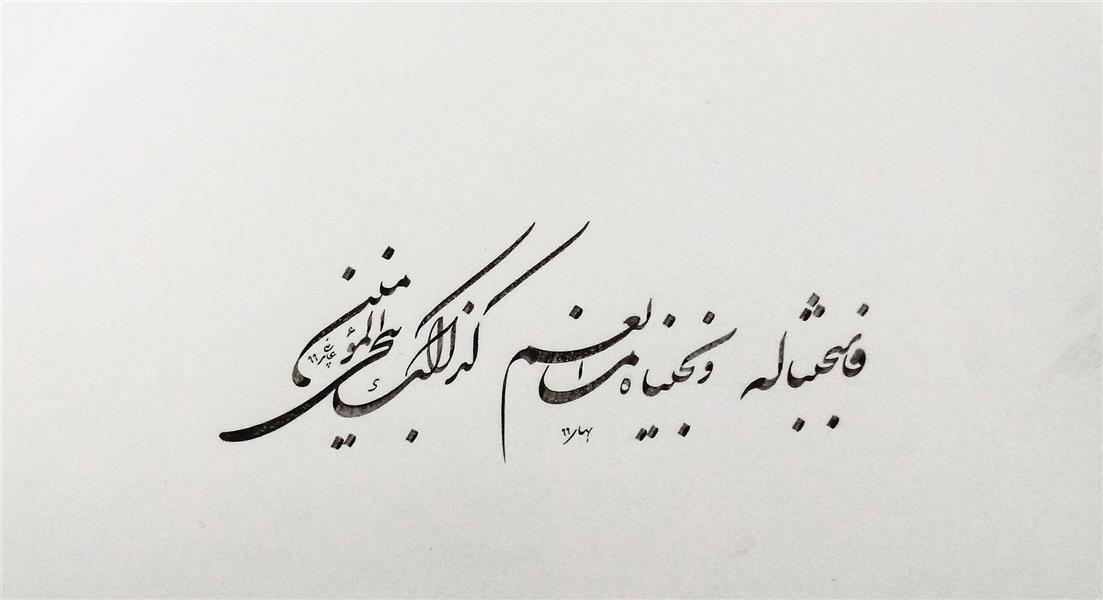 فاستجبنا له ونجیناه من الغم کذالک ننجی المؤمنین
بهار ۶۶